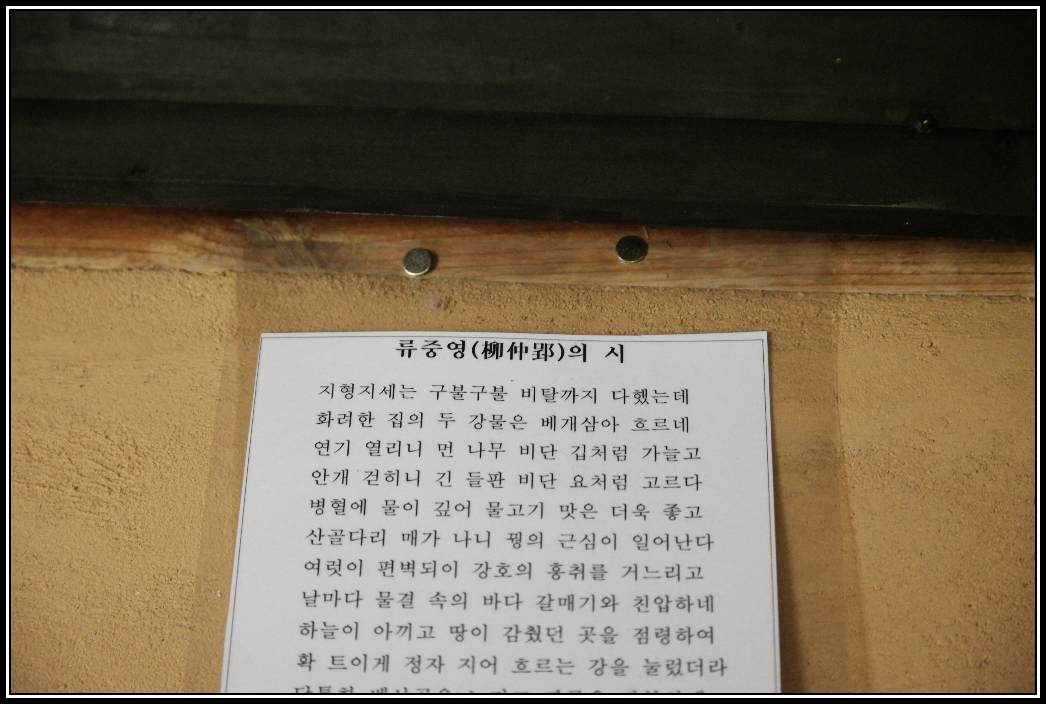 류중영(柳仲郢)의 시
지형지세는 구불구불 비탈까지 다했는데
화려한 집의 두 강물은 베개삼아 흐르네
연기 열리니 먼 나무 비단 깁처럼 가늘고
안개 걷히니 긴 들판 비단 요처럼 고르다
병혈에 물이 깊어 물고기 맛은 더욱 좋고
산골다리 매가 나니 꿩의 근심이 일어난다
여럿이 편벽되이 강호의 흥취를 거느리고
날마다 물결 속의 바다 갈매기와 친압하네
하늘이 아끼고 땅이 감췄던 곳을 점령하여
확 트이게 정자 지어 흐르는 강을 눌렀더라